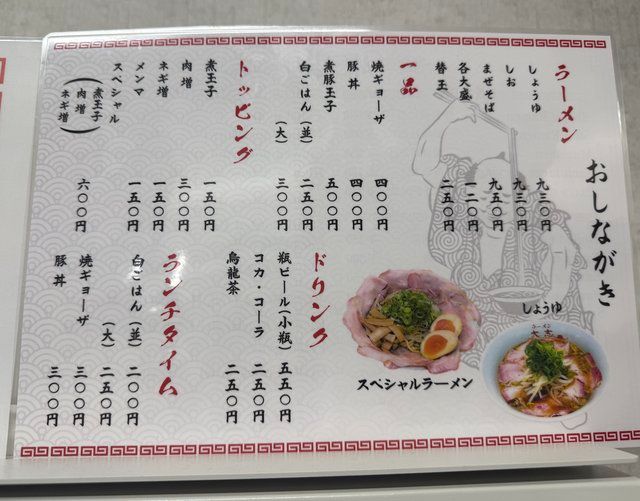 おしながき
ラーメン
しょうゆ 九三〇円
しお 九三〇円
まぜそば 九五〇円
各大盛 一二〇円
替玉 二五〇円
一品
焼ギョーザ 四〇〇円
豚丼 四〇〇円
煮豚玉子 五〇〇円
白ごはん(並) 二五〇円
(大) 三〇〇円
トッピング
煮玉子 一五〇円
肉増 三〇〇円
ネギ増 一五〇円
メンマ 一五〇円
スペシャル 六〇〇円
(煮玉子
肉増
ネギ増)
しょうゆ
スペシャルラーメン
ドリンク
瓶ビール(小瓶) 五五〇円
コカ・コーラ 二五〇円
烏龍茶 二五〇円
ランチタイム
白ごはん(並) 二〇〇円
(大) 二五〇円
焼ギョーザ 三〇〇円
豚丼 三〇〇円